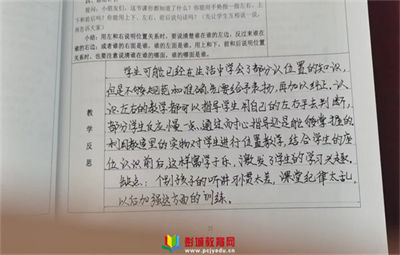 提问：小朋友们，这节课你都知道了什么？你能用手势指一指左右、上
下和前后吗？你能用上下、左右、前后说话吗？
小结：用左和右说明位置关系时，要说清楚谁在谁的左边，反过来谁在
谁的右边；或者谁的右面是谁，谁的左面是谁。用上和下、前和后说明位置
关系时，也要注意说清谁在谁的哪面，谁的哪面是谁。
教学反思
学生可能已经在生活中学会了部分认位置的知识，
但是不够规范和准确，先要给予表扬，再加以纠正，认
识左右的教学都可以指导学生用自己的左右手去判断，
部分学生反应慢一点，通过耐心指导还是能够掌握的
利用教室里的实物对学生进行位置教学，结合学生的座
位认识前后，这样寓学于乐，激发了学生的学习兴趣。
缺点：个别孩子的听讲习惯太差，课堂纪律太乱，
以后加强这方面的训练。
彭城教育网
www.pcjyedu.cn